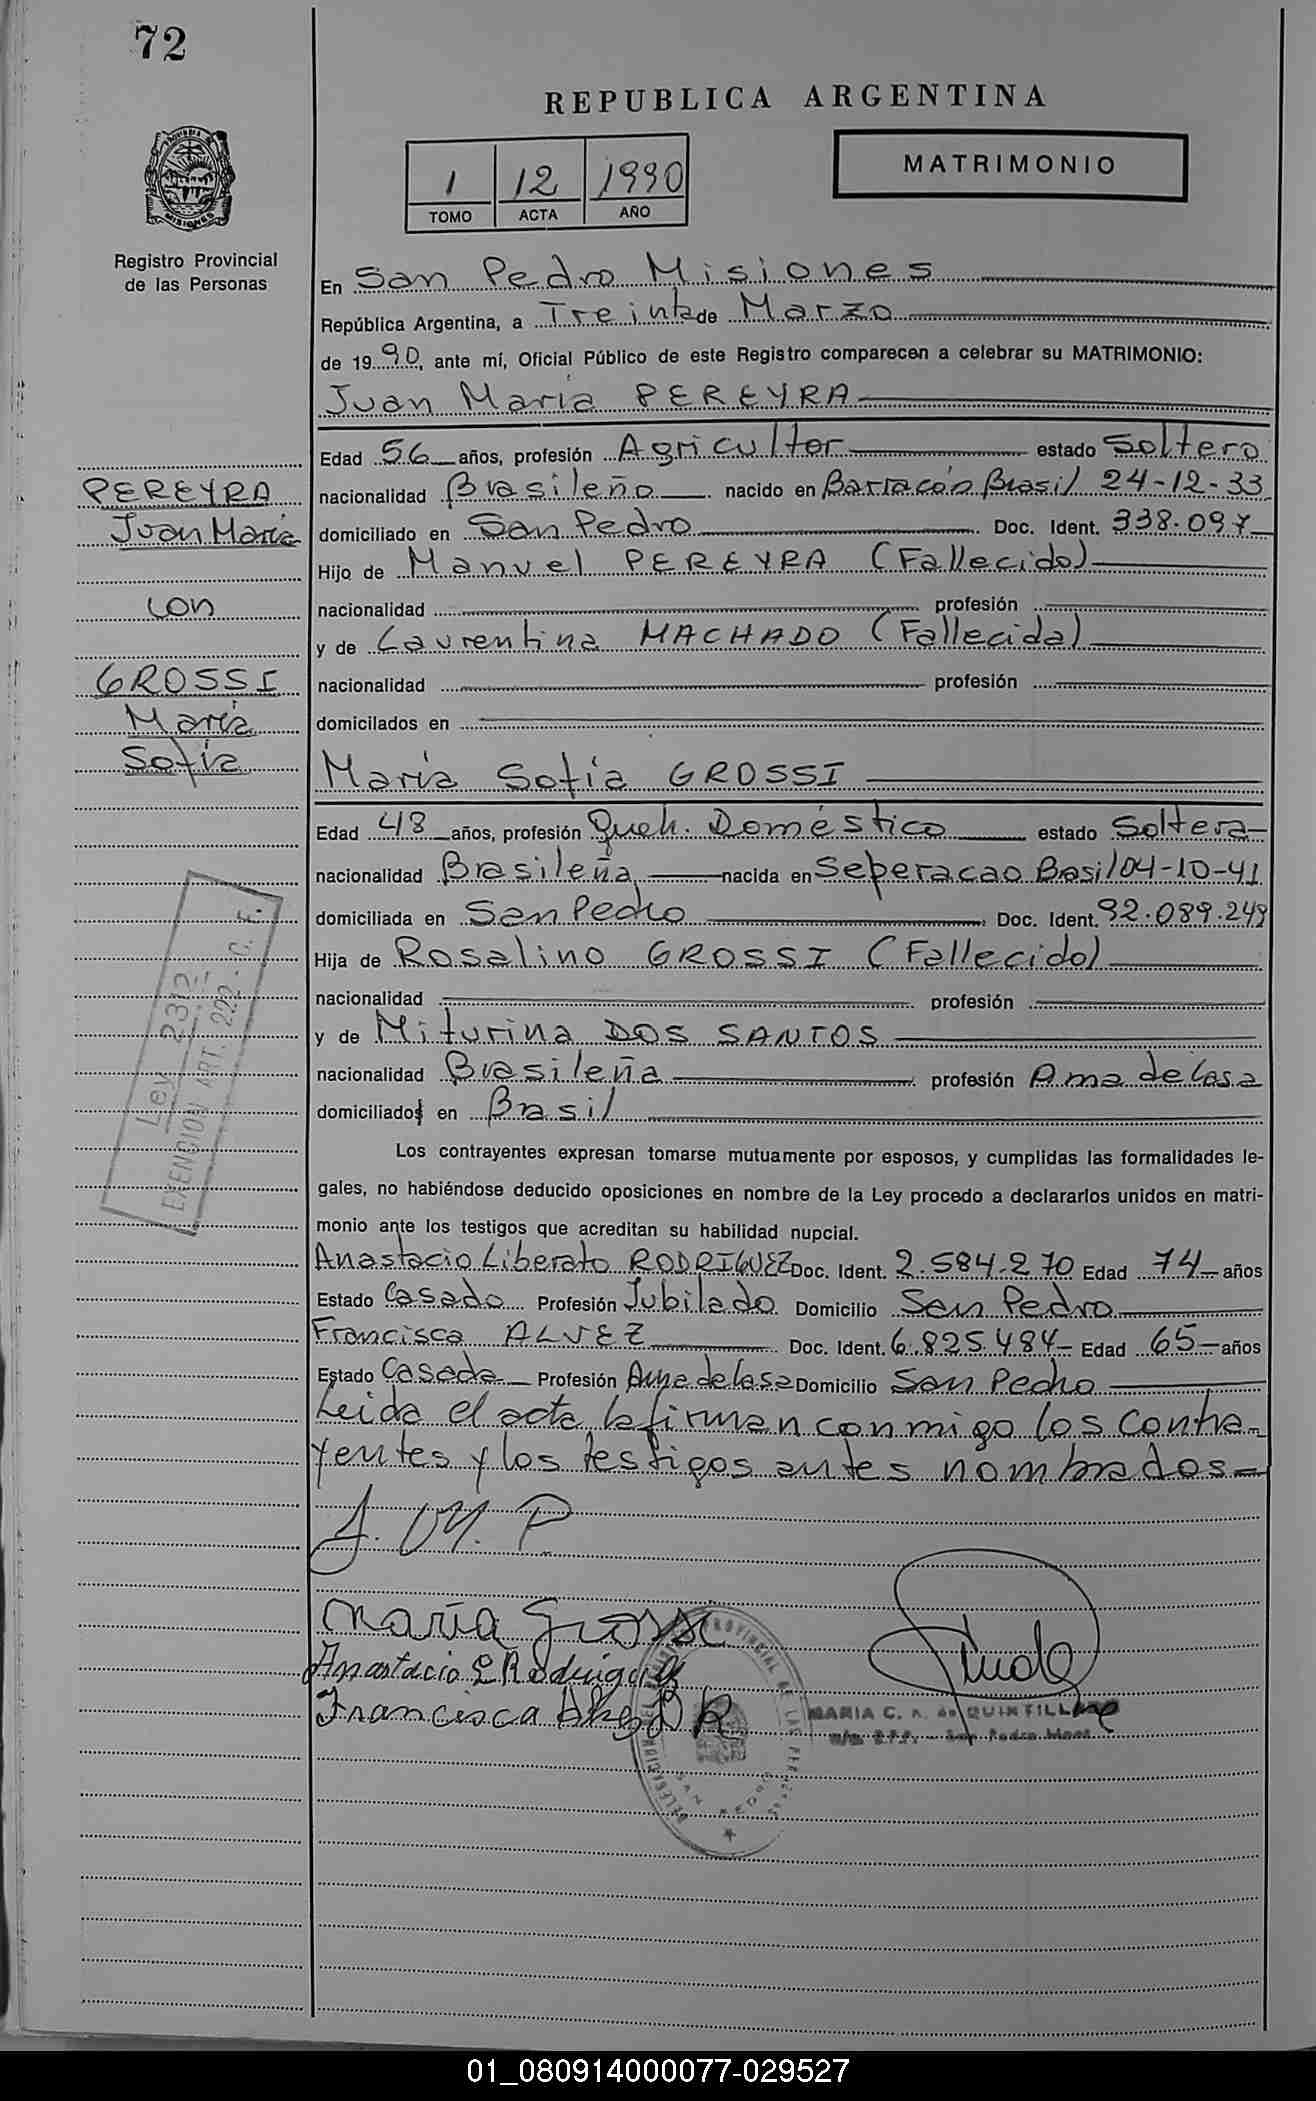 72
REPUBLICA ARGENTINA
MATRIMONIO
1 12 1990
TOMO ACTA AÑO
MISIONES
Registro Provincial
de las Personas
En San Pedro Misiones
República Argentina, a Treinta de Marzo
de 1990, ante mí, Oficial Público de este Registro comparecen a celebrar su MATRIMONIO:
Juan María PEREYRA
Edad 56 años, profesión Agricultor estado Soltero
nacionalidad Brasileño nacido en Barracón Brasil 24-12-33
domiciliado en San Pedro Doc. Ident. 338.097
Hijo de Manuel PEREYRA (Fallecido)
nacionalidad profesión
y de Laurentina MACHADO (Fallecida)
nacionalidad profesión
domicilados en
PEREYRA
Juan María
con
GROSSI
María
Sofía
María Sofía GROSSI
Edad 48 años, profesión Queh. Doméstico estado Soltera
nacionalidad Brasileña nacida en Seperacao Brasil 04-10-41
domiciliada en San Pedro Doc. Ident. 92.089.249
Hija de Rosalino GROSSI (Fallecido)
nacionalidad profesión
y de Miturina DOS SANTOS
nacionalidad Brasileña profesión Ama de Casa
domiciliados en Brasil
Ley 2312
EXENCION ART. 222 - C. F.
Los contrayentes expresan tomarse mutuamente por esposos, y cumplidas las formalidades le-
gales, no habiéndose deducido oposiciones en nombre de la Ley procedo a declararlos unidos en matri-
monio ante los testigos que acreditan su habilidad nupcial.
Anastacio Liberato RODRIGUEZ Doc. Ident. 2.584.270 Edad 74 años
Estado Casado Profesión Jubilado Domicilio San Pedro
Francisca ALVEZ Doc. Ident. 6.825.484 Edad 65 años
Estado Casada Profesión Ama de Casa Domicilio San Pedro
Leida el acta, la firman conmigo los contra-
yentes y los testigos antes nombrados
J. M. P
María Grossi
Anastacio L Rodriguez
Francisca
MARIA C. R. de QUINTILLANE
DELEGACION DEL REGISTRO PROVINCIAL DE LAS PERSONAS
SAN PEDRO
01_080914000077-029527